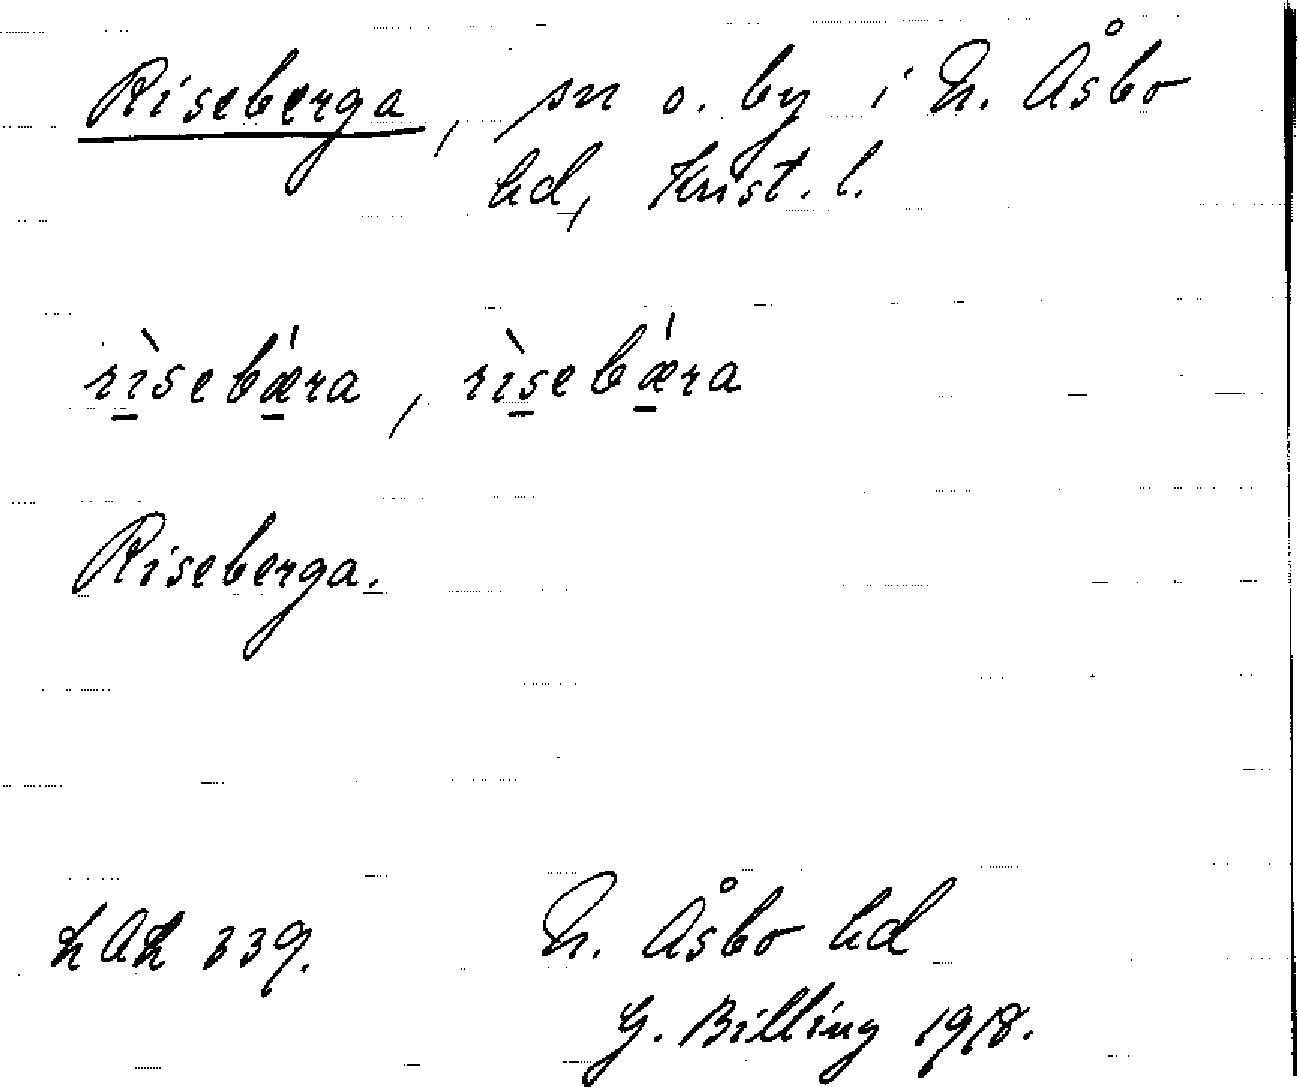 Riseberga, sn o. by i N. Åsbo
hd, Krist. l.
rìsebǽra, rìsebǽra
Riseberga.
LAL 339.
N. Åsbo hd
G. Billing 1918.